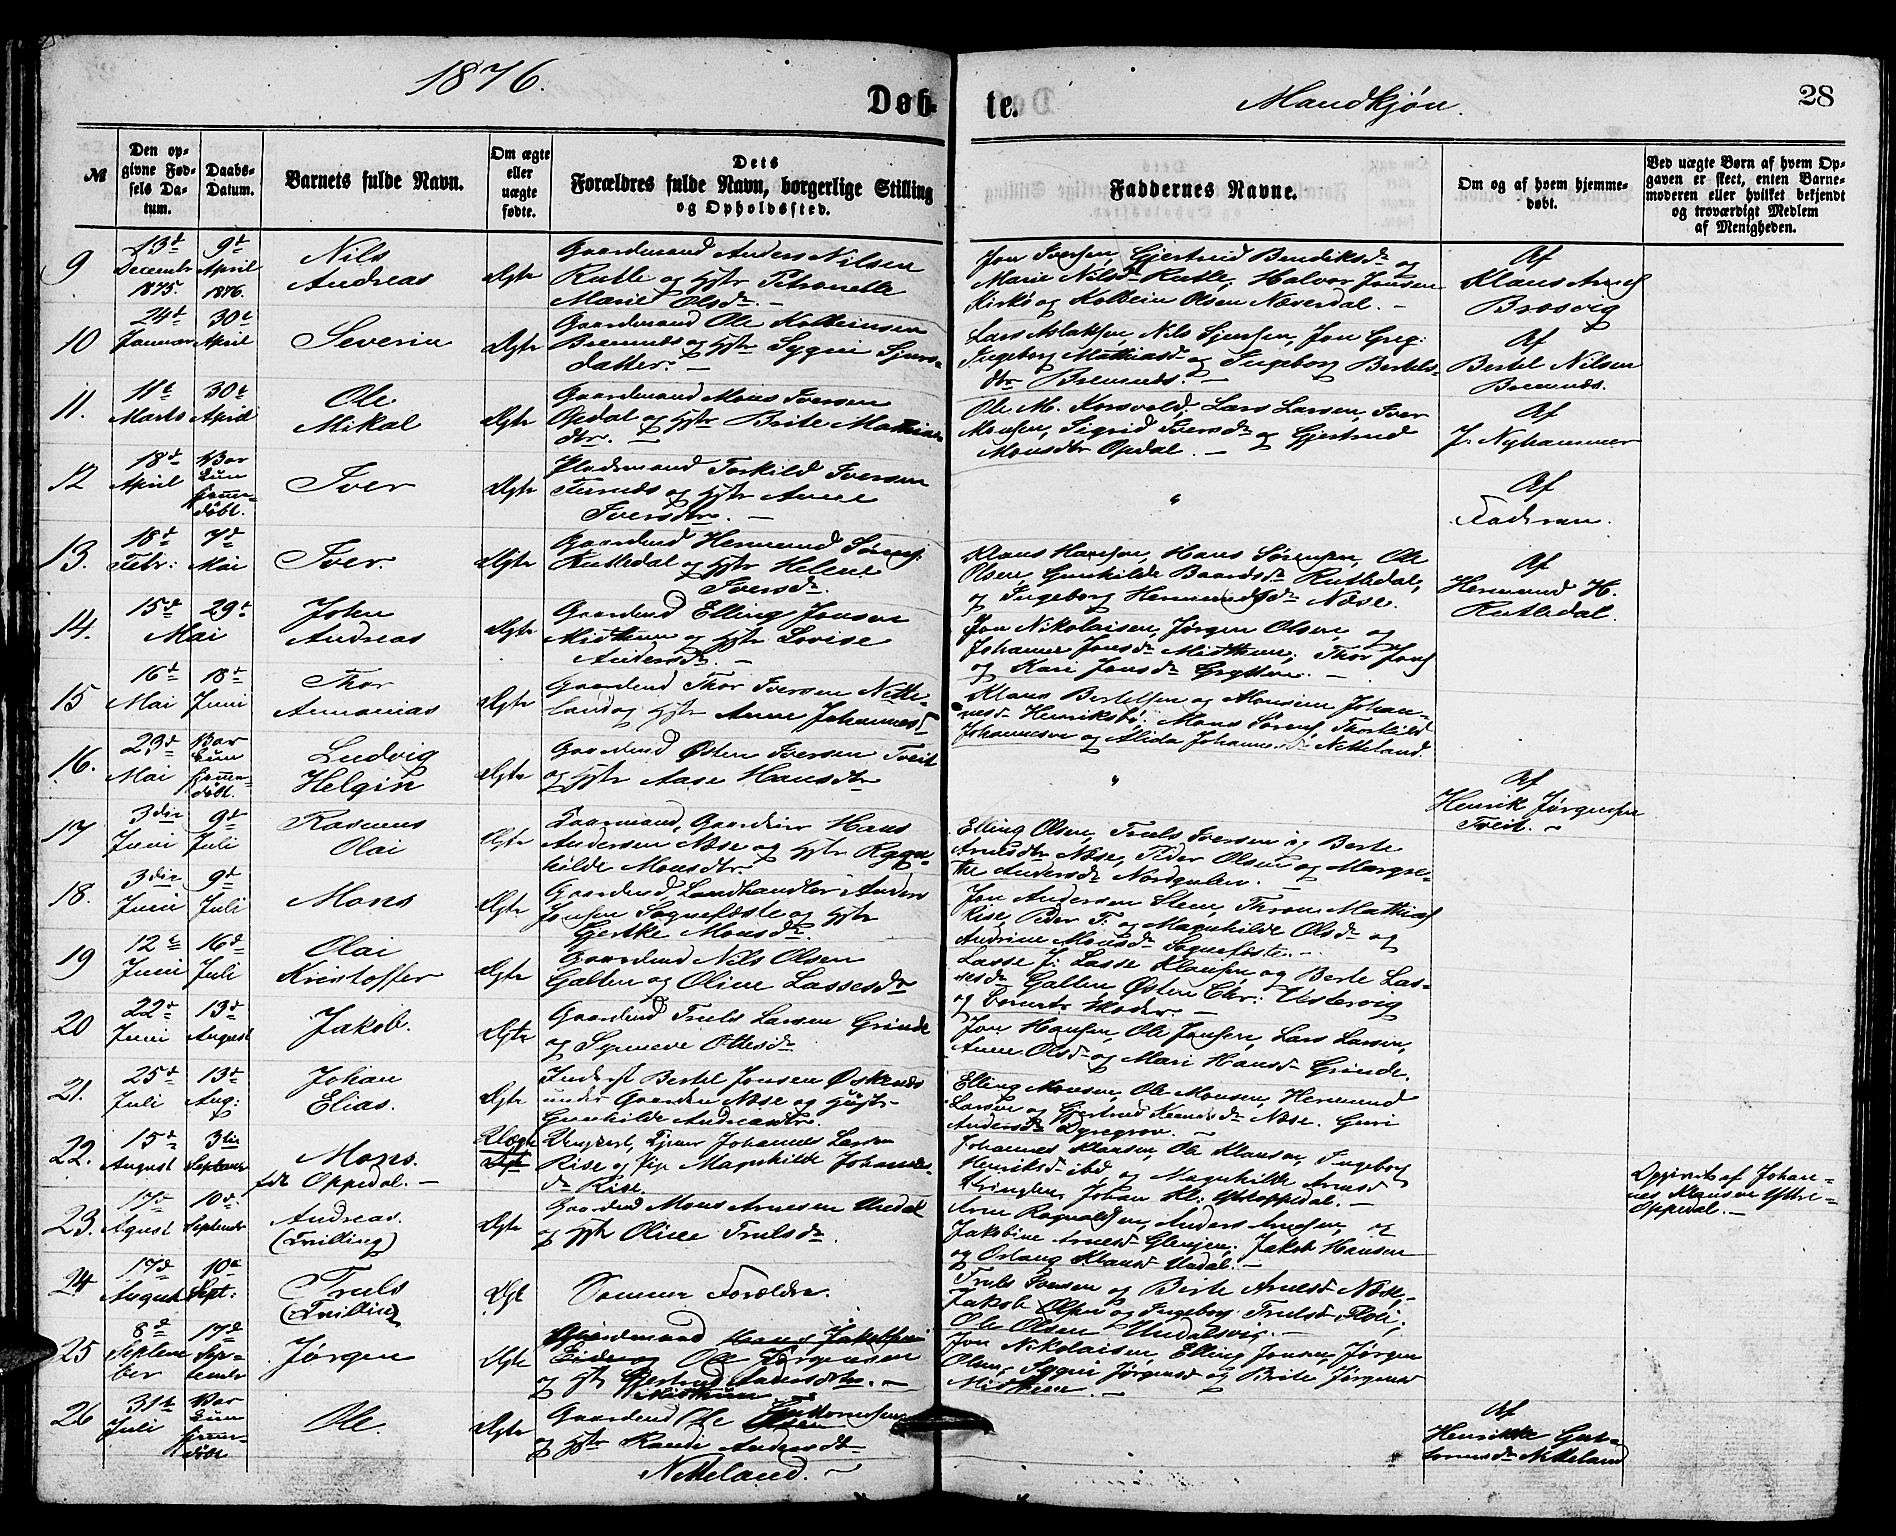 1876.
Døb-
te.
Mandkjøn.
28
№
Den op-
givne Fød-
sels Da-
tum.
Daabs-
Datum.
Barnets fulde Navn.
Om ægte
eller
uægte
fødte.
Dets
Forældres fulde Navn, borgerlige Stilling
og Opholdssted.
Faddernes Navne.
Om og af hvem hjemme-
døbt.
Ved uægte Børn af hvem Op-
gaven er skeet, enten Barne-
moderen eller hvilket bekjendt
og troværdigt Medlem
af Menigheden.
9
13d
December
1875.
9d
April
1876.
Nils
Andreas
Ægte
Gaardmand Anders Nilsen
Rutle og Hstr Petronelle
Marie Olsdr. —
Jon Iversen, Gjertrud Bendiksdr og
Marie Nilsdr Rutle, Halvor Jonsen
Kirkø og Kolbein Olsen Næverdal. —
Af
Klaus
Brosvig
10
24d
Januar
30d
April
Severin
Ægte
Gaardmand Ole Kolbeinsen
Bremnes og Hstr Sygni Sjurs-
datter. —
Lars Aslaksen, Nils Sjursen, Jon Greg:
Ingeborg Mathiasdr og Ingeborg Bertels-
dtr Bremnes. —
Af
Bertel Nilsen
Bremnes.
11.
11t
Marts
30d
April
Ole
Mikal
Ægte
Gaardmand Mons Iversen
Opdal og Hstr Brite Mathias
dtr. —
Ole M. Korsvold, Lars Larsen, Iver
Monsen, Sigrid Iversdr og Gjertrud
Monsdtr Opdal. —
Af
J. Nyhammer
12
18d
April
Var
kun
hjem-
døbt.
Iver
Ægte
Pladsmand Torkild Iversen
Furnes og Hstr Anne
Iversdtr. —
"
Af
Faderen.
13.
18d
Febr:
7d
Mai
Iver.
Ægte
Gaardmd Hermund Sørens.
Rutledal og Hstr Helene
Iversdr.
Klaus Hansen, Hans Sørensen, Ole
Olsen, Gunhilde Baardsdr Rutledal,
og Ingeborg Hermundsdr Næse.
Af
Hermund H.
Rutledal.
14.
15d
Mai
29d
John
Andreas
Ægte
Gaardmd Elling Jonsen
Midtun og Hstr Lovise
Andersdr. —
Jon Nikolaisen, Jørgen Olsen, og
Johanne Jonsdr Midttun, Thor Jons
og Kari Jonsdr Grytten. —
15
16d
Mai
18d
Juni
Thor
Annanias
Ægte
Gaardmd Thor Iversen Nette-
land og Hstr Anne Johannesd
Klaus Bertelsen og Johan-
nesdr Henriksbø. Mons Sørens, Thorkild
Johannesen og Alida Johannesdr Netteland.
16.
23d
Mai
Var
kun
hjem-
døbt.
Ludvig
Helgin
Ægte
Gaardmd Østen Iversen Tveit
og Hstr Aase Hansdtr
"
Af
Henrik Jørgensen
Tveit. —
17
3die
Juni
9d
Juli
Rasmus
Olai
Ægte
Hans
Andersen Næse og Hstr Ragn-
hilde Monsdtr.
Elling Olsen, Truls Iversen og Berte
Arnesdtr Næse, Peder Olsen og Margre-
the Andersdr Nordgulen. —
18.
3die
Juni
9d
Juli
Mons
Ægte
Gaardmd Landhandler Anders
Jonsen Sognefæste og Hstr
Gertke Monsdr.
Jon Andersen Steen, Thron Mathias
Rise, Peder T. og Magnhilde Olsdr og
Andrine Monsdr Sognefæste. —
19
12t
Juni
16d
Juli
Olai
Kristoffer
Ægte
Gaardmd Nils Olsen
Galten og Oline Lassesdr
Lasse J. Lasse Klausen og Berte Las-
sesdr Galten, Østen Chr: Vestervig
og Barnets Moder. —
20
22d
Juni
13d
August
Jakob.
Ægte
Gaardmd Truls Larsen Grinde
og Synneve Ottesdr
Jon Hansen, Ole Jonsen, Lars Larsen,
Anne Olsdr og Mari Hansdr Grinde.
21.
25d
Juli
13d
Aug:
Johan
Elias.
Ægte
Inderst Bertel Jonsen Øskenes
under Gaarden Næse og Hstr
Gunhilde Andreasdtr.
Elling Monsen, Ole Monsen, Hermund
Larsen og Gjertrud Næse. Guri
Andersdr Dyregrov. —
22.
15d
August
3die
September
Mons.
født Oppedal. —
Uægte
Ægte
Ungkarl, Tjener Johannes Larsen
Rise og Pige Magnhilde Johannes-
dr Rise.
Johannes Klausen, Ole Klausen, Ingeborg
Henriksdr ibd og Magnhilde Arnesd
Johan Kl. Ytreoppedal. —
Opgivet af Johan-
nes Klausen Yttre-
Oppedal. —
23.
17d
Agust
10d
September
Andreas.
(Tvilling)
Ægte
Gaardmd Mons Arnesen Undal
og Hstr Oline Trulsdr.
Arne Ragnaldsen, Anders Arnesen, og
Jakobine Arnesdr Glenjen, Jakob Hansen
og Orlaug Klausdr Undal. —
24
17d
August
10d
Sept:
Truls
(Tvilling)
Ægt
Samme Forældre.
Truls Iversen og Berte Arnesdr Næse,
Jakob Olsen og Ingeborg Trulsdr Floli,
Ole Olsen Undalsvig. —
25
8d
Septem
ber
17d
Sep-
tember
Jørgen
Ægte
Gaardmand Hans Jakobsen
Eide og Ole Jørgensen
og Hstr Gjertrud Andersdtr. —
Midttun
Jon Nikolaisen, Elling Jonsen, Jørgen
Olsen, Sygni Jørgensd og Brite Jørgensd
Midttun. —
26
31te
Juli
Var
kun
hjem-
døbt
Ole.
Ægte
Gaardmd Ole Guttormsen
og Hstr Randi Andersdtr
Netteland. —
Af
Henrikke Gut-
tormsdr Netteland